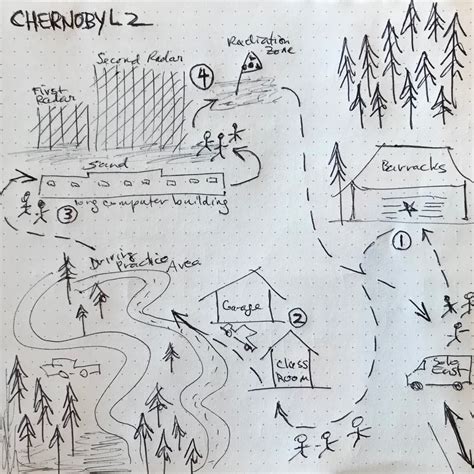 CHERNOBYL 2
Second Radar
Radiation
Zone
First
Radar
4
Sand
long computer building
3
Barracks
1
Driving
Practice
Area
Garage
2
Class
Room
Solo
East